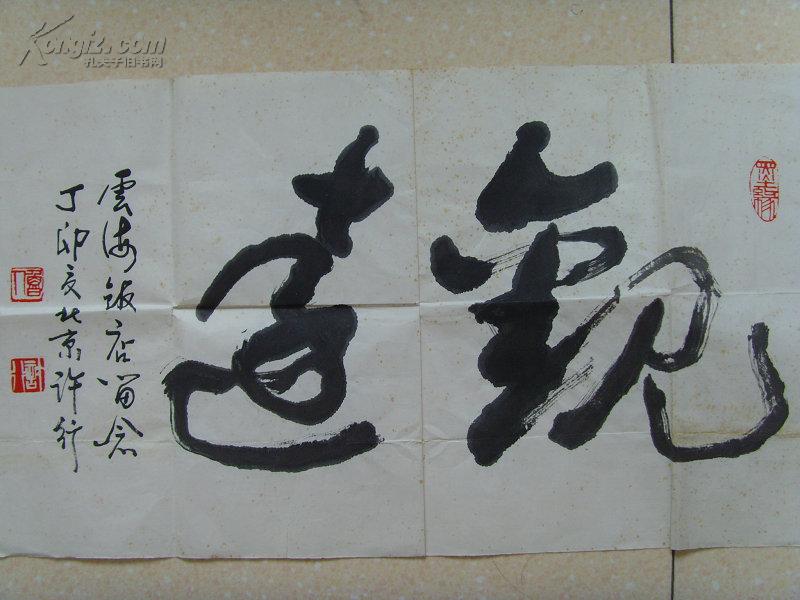 觀遠
雲海飯店留念
丁卯夏北京許行
Kongfz.com
孔夫子旧书网